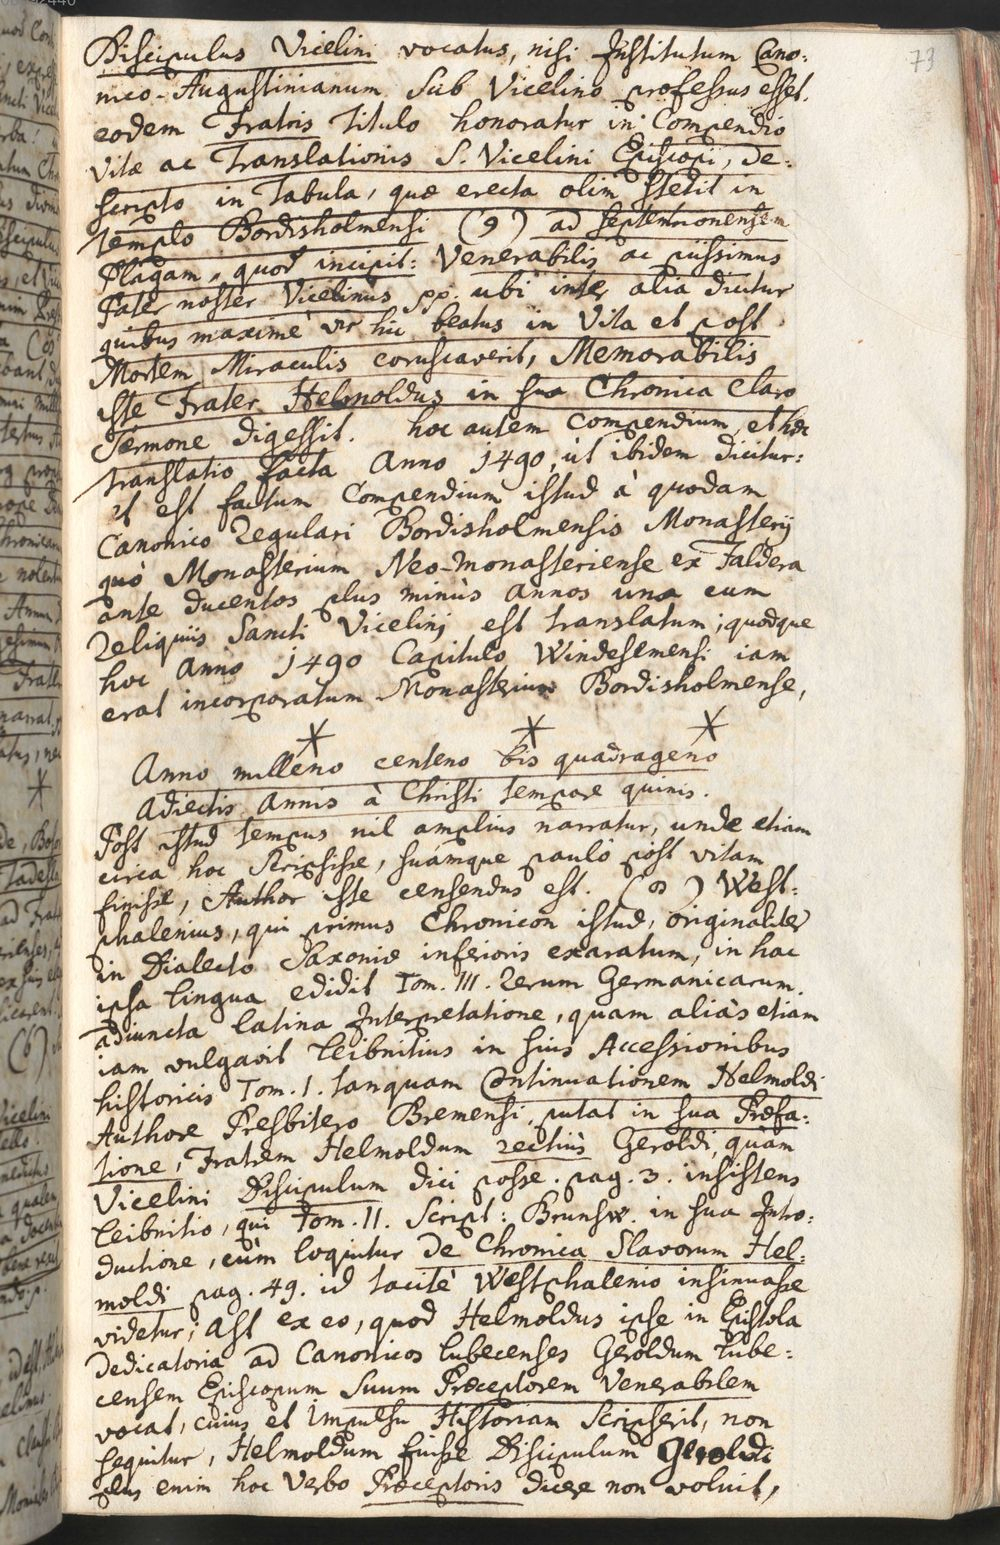 73
Discipulus Vicelini vocatus, nisi Institutum Cano:
nico-Augustinianum sub Vicelino professus esset.
eodem Fratris titulo honoratur in Compendio
Vitæ ac Translationis S. Vicelini Episcopi, de:
scripto in tabula, quæ erecta olim stetit in
templo Bordisholmensi (9) ad septentrionensem
Plagam, quod incipit: Venerabilis ac piissimus
Pater noster Vicelinus pp. ubi inter alia dicitur
quibus maximè vir hic beatus in Vita et post
Mortem Miraculis coruscaverit, Memorabilis
iste Frater Helmoldus in sua Chronica claro
Sermone digessit. hoc autem Compendium, et hæc
translatio facta Anno 1490, ut ibidem dicitur:
et est factum Compendium istud à quodam
Canonico Regulari Bordisholmensis Monasterij
quò Monasterium Neo-monasteriense ex Faldera
ante ducentos plus minùs annos una cum
Reliquiis Sancti Vicelinj est translatum; quodque
hoc anno 1490 Capitulo Windesemensi iam
erat incorporatum Monasterium Bordisholmense,
* * *
Anno milleno centeno bis quadrageno
adiectis annis à Christi tempore quinis.
Post istud tempus nil amplius narratur, unde etiam
circa hoc scripsisse, suamque paulò post vitam
finisse, Author iste censendus est. ( ) West:
phalenius, qui primus Chronicon istud, originaliter
in Dialecto Saxoniæ inferioris exaratum, in hac
ipsa lingua edidit Tom. III. Rerum Germanicarum.
adiuncta latina Interpretatione, quam aliàs etiam
iam vulgavit Leibnitius in suis Accessionibus
historicis Tom. I. tanquam Continuationem Helmoldi
Authore Presbitero Bremensi, putat in sua Præfa:
tione, Fratrem Helmoldum rectiùs Geroldi, quàm
Vicelini Discipulum dici posse. pag. 3. insistens
Leibnitio, qui Tom. II. Script: Brunsw. in sua Intro:
ductione, cùm loquitur de Chronica Slavorum Hel:
moldi pag. 49. id tacitè Westphalenio insinuasse
videtur; ast ex eo, quod Helmoldus ipse in Epistola
Dedicatoria ad Canonicos Lubecenses Geroldum Lube:
censem Episcopum suum Præceptorem Venerabilem
vocat, cuius et impulsu Historiam scripserit, non
sequitur, Helmoldum fuisse Discipulum Geroldi
plus enim hoc Verbo Præceptoris dicere non voluit,